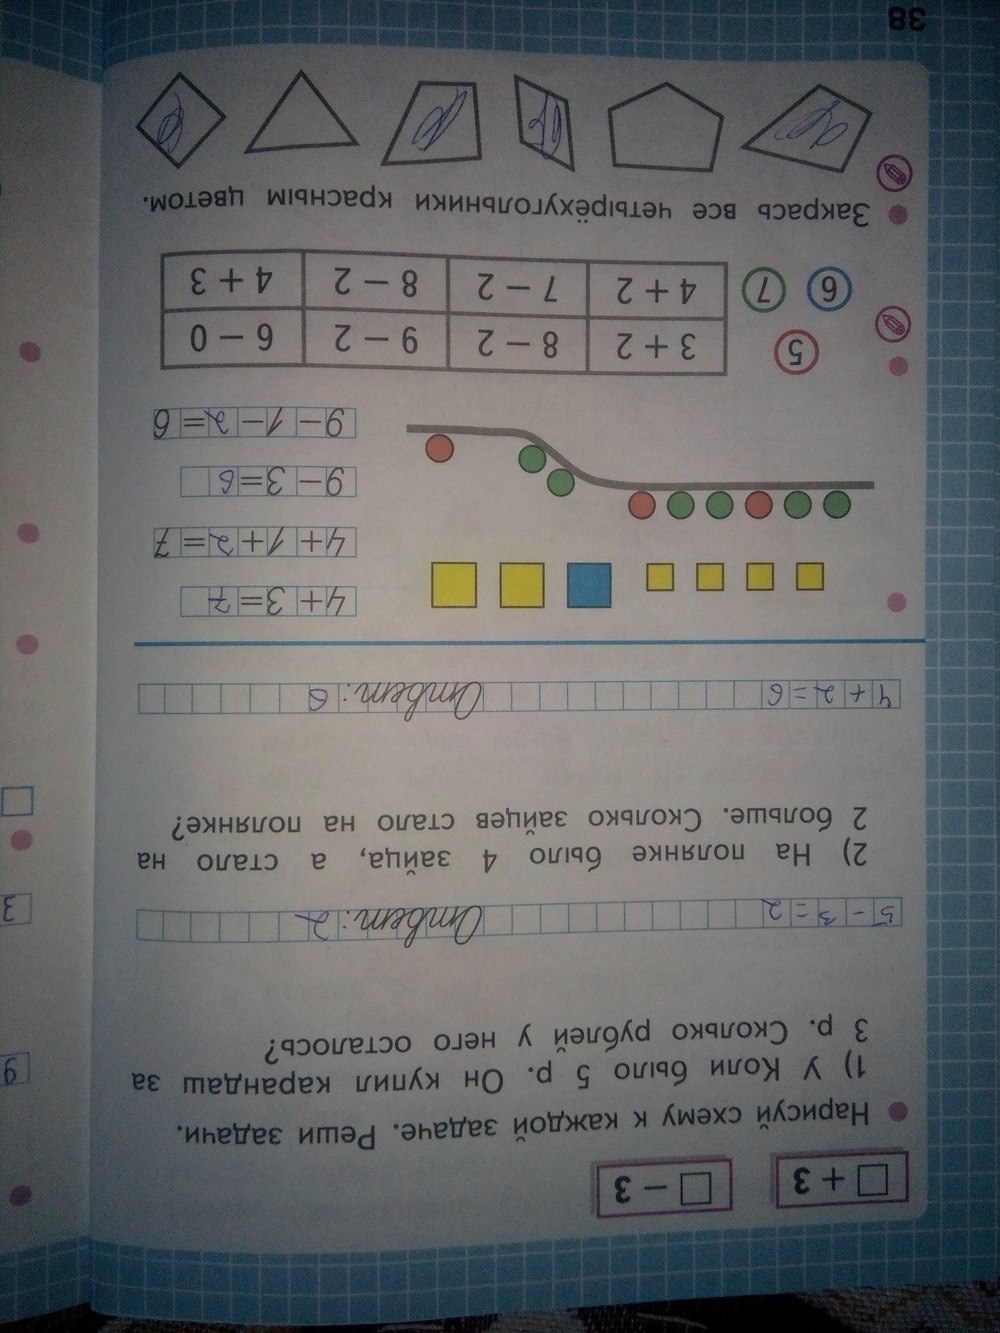 □ + 3
□ − 3
Нарисуй схему к каждой задаче. Реши задачи.
1) У Коли было 5 р. Он купил карандаш за
3 р. Сколько рублей у него осталось?
5 − 3 = 2 Ответ: 2
2) На полянке было 4 зайца, а стало на
2 больше. Сколько зайцев стало на полянке?
4 + 2 = 6 Ответ: 6
4 + 3 = 7
4 + 1 + 2 = 7
9 − 3 = 6
9 − 1 − 2 = 6
5
6 7
3 + 2 8 − 2 9 − 2 6 − 0
4 + 2 7 − 2 8 − 2 4 + 3
Закрась все четырёхугольники красным цветом.
38
9
3